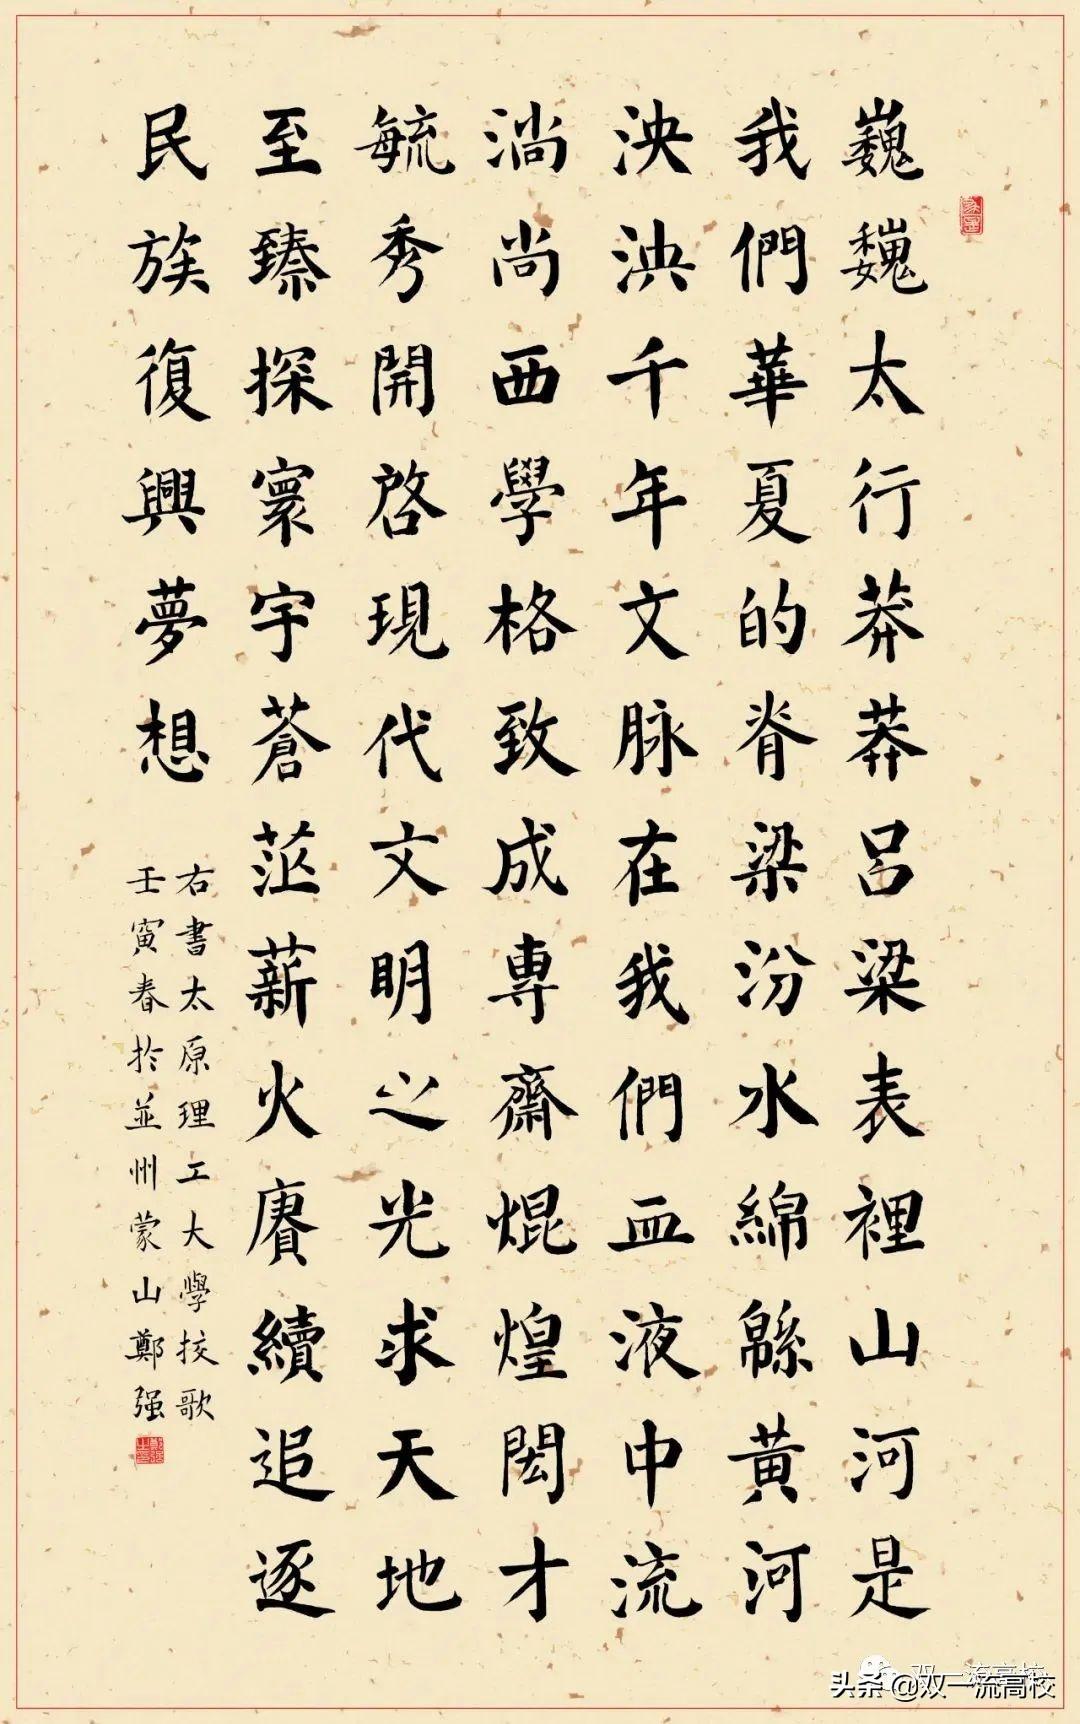 巍巍太行莽莽呂梁表裡山河是
我們華夏的脊梁汾水綿緜黃河
泱泱千年文脉在我們血液中流
淌尚西學格致成專齋焜煌閎才
毓秀開啓現代文明之光求天地
至臻探寰宇蒼茫薪火賡續追逐
民族復興夢想
右書太原理工大學校歌
壬寅春於並州蒙山鄭强
双一流高校
头条 @双一流高校